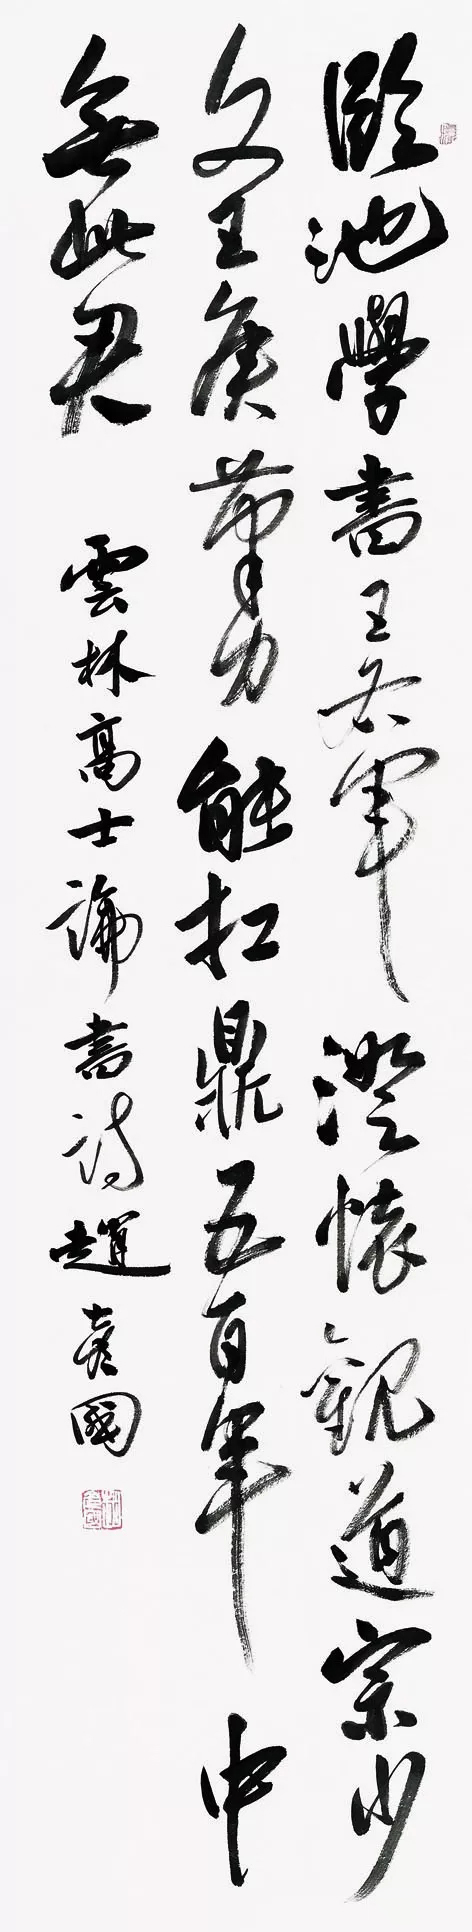 臨池學書王右軍澄懷觀道宗少
文王侯筆力能扛鼎五百年中
無此君
雲林高士論書詩趙彥國